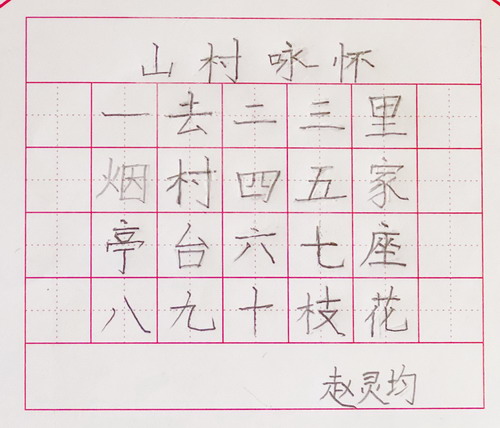 山村咏怀
一去二三里
烟村四五家
亭台六七座
八九十枝花
赵灵均